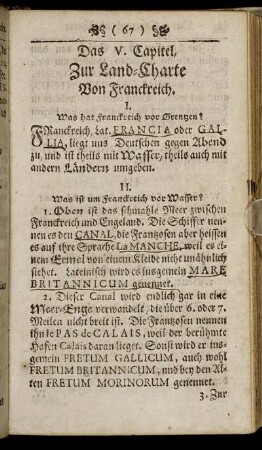 ( 67 )
Das V. Capitel.
Zur Land-Charte
Von Franckreich.
I.
Was hat Franckreich vor Grentzen?
FRanckreich, Lat. FRANCIA oder GAL-
LIA, liegt uns Deutschen gegen Abend
zu, und ist theils mit Wasser, theils auch mit
andern Ländern umgeben.
II.
Was ist um Franckreich vor Wasser?
1. Oben ist das schmahle Meer zwischen
Franckreich und Engeland. Die Schiffer nen-
nen es den CANAL, die Frantzosen aber heissen
es auf ihre Sprache La MANCHE, weil es ei-
nem Ermel von einem Kleide nicht unähnlich
siehet. Lateinisch wird es insgemein MARE
BRITANNICUM genennet.
2. Dieser Canal wird endlich gar in eine
Meer-Enge verwandelt, die über 6. oder 7.
Meilen nicht breit ist. Die Frantzosen nennen
ihn le PAS de CALAIS, weil der berühmte
Hafen Calais daran lieget. Sonst wird er ins-
gemein FRETUM GALLICUM, auch wohl
FRETUM BRITANNICUM, und bey den Al-
ten FRETUM MORINORUM genennet.
3. Zur